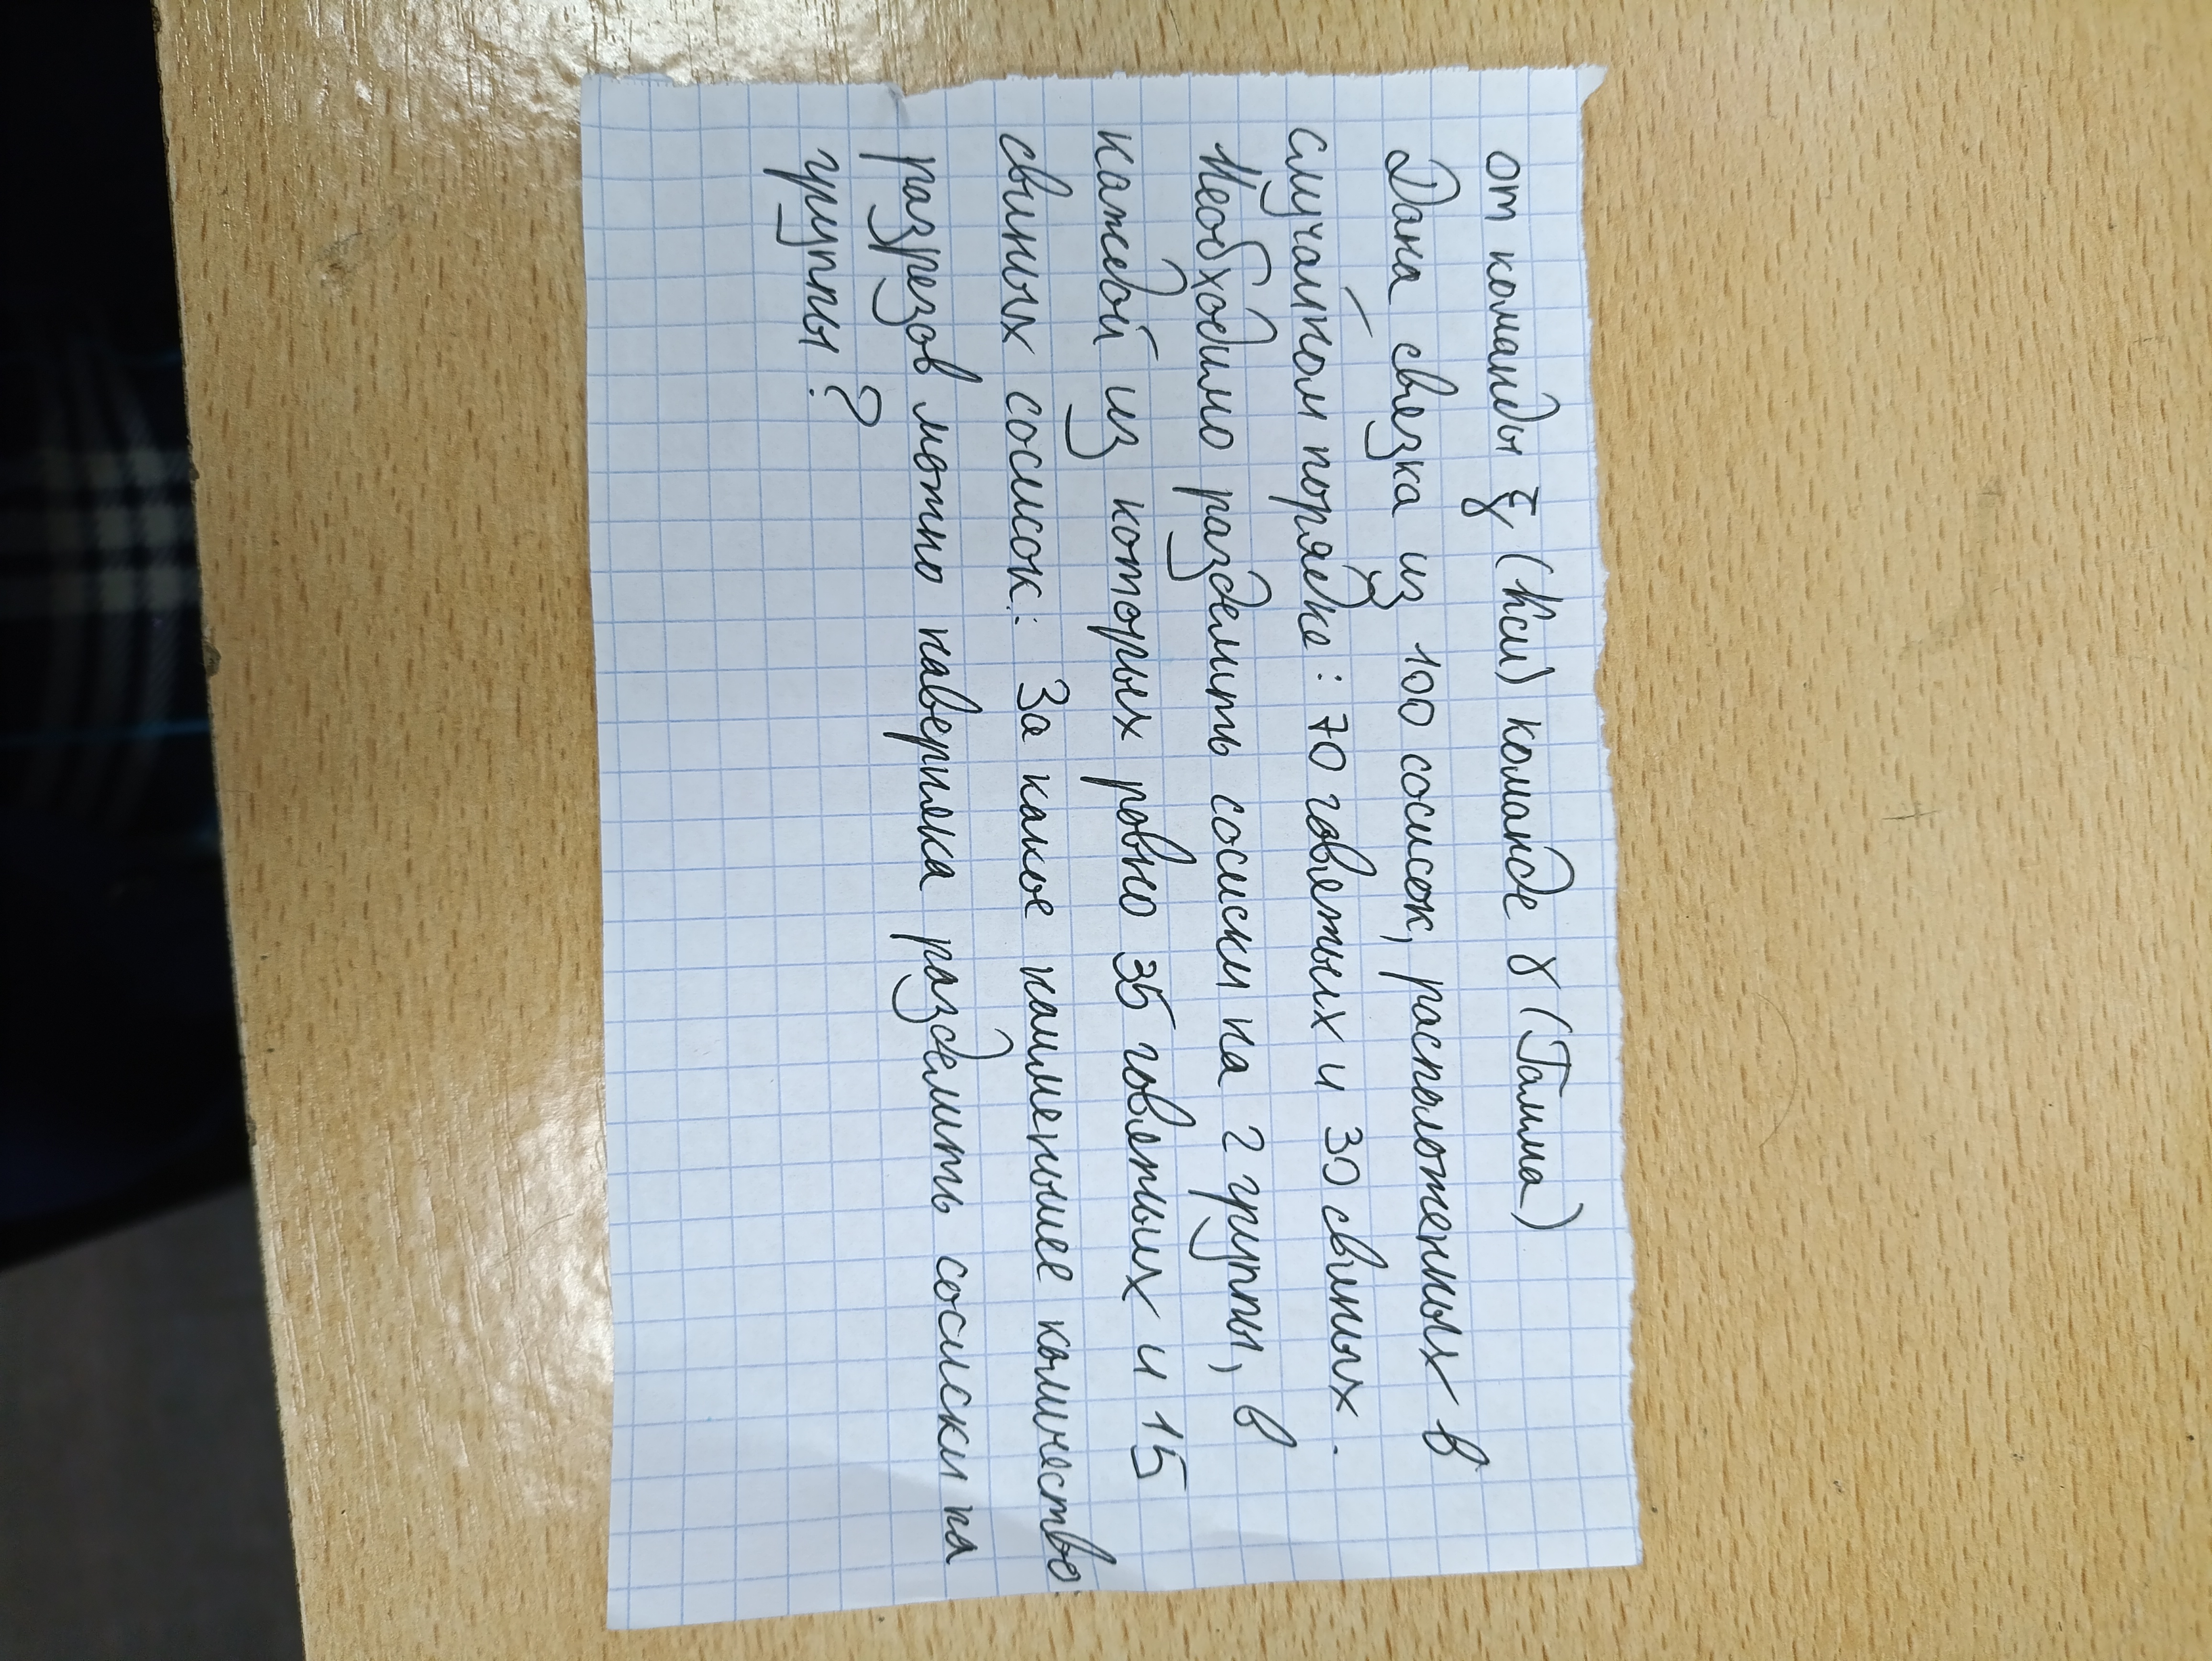 от команды ξ (Кси) команде γ (Гамма)
Дана связка из 100 сосисок, расположенных в
случайном порядке: 70 говяжьих и 30 свиных.
Необходимо разделить сосиски на 2 группы, в
каждой из которых ровно 35 говяжьих и 15
свиных сосисок. За какое наименьшее количество
разрезов можно наверняка разделить сосиски на
группы?